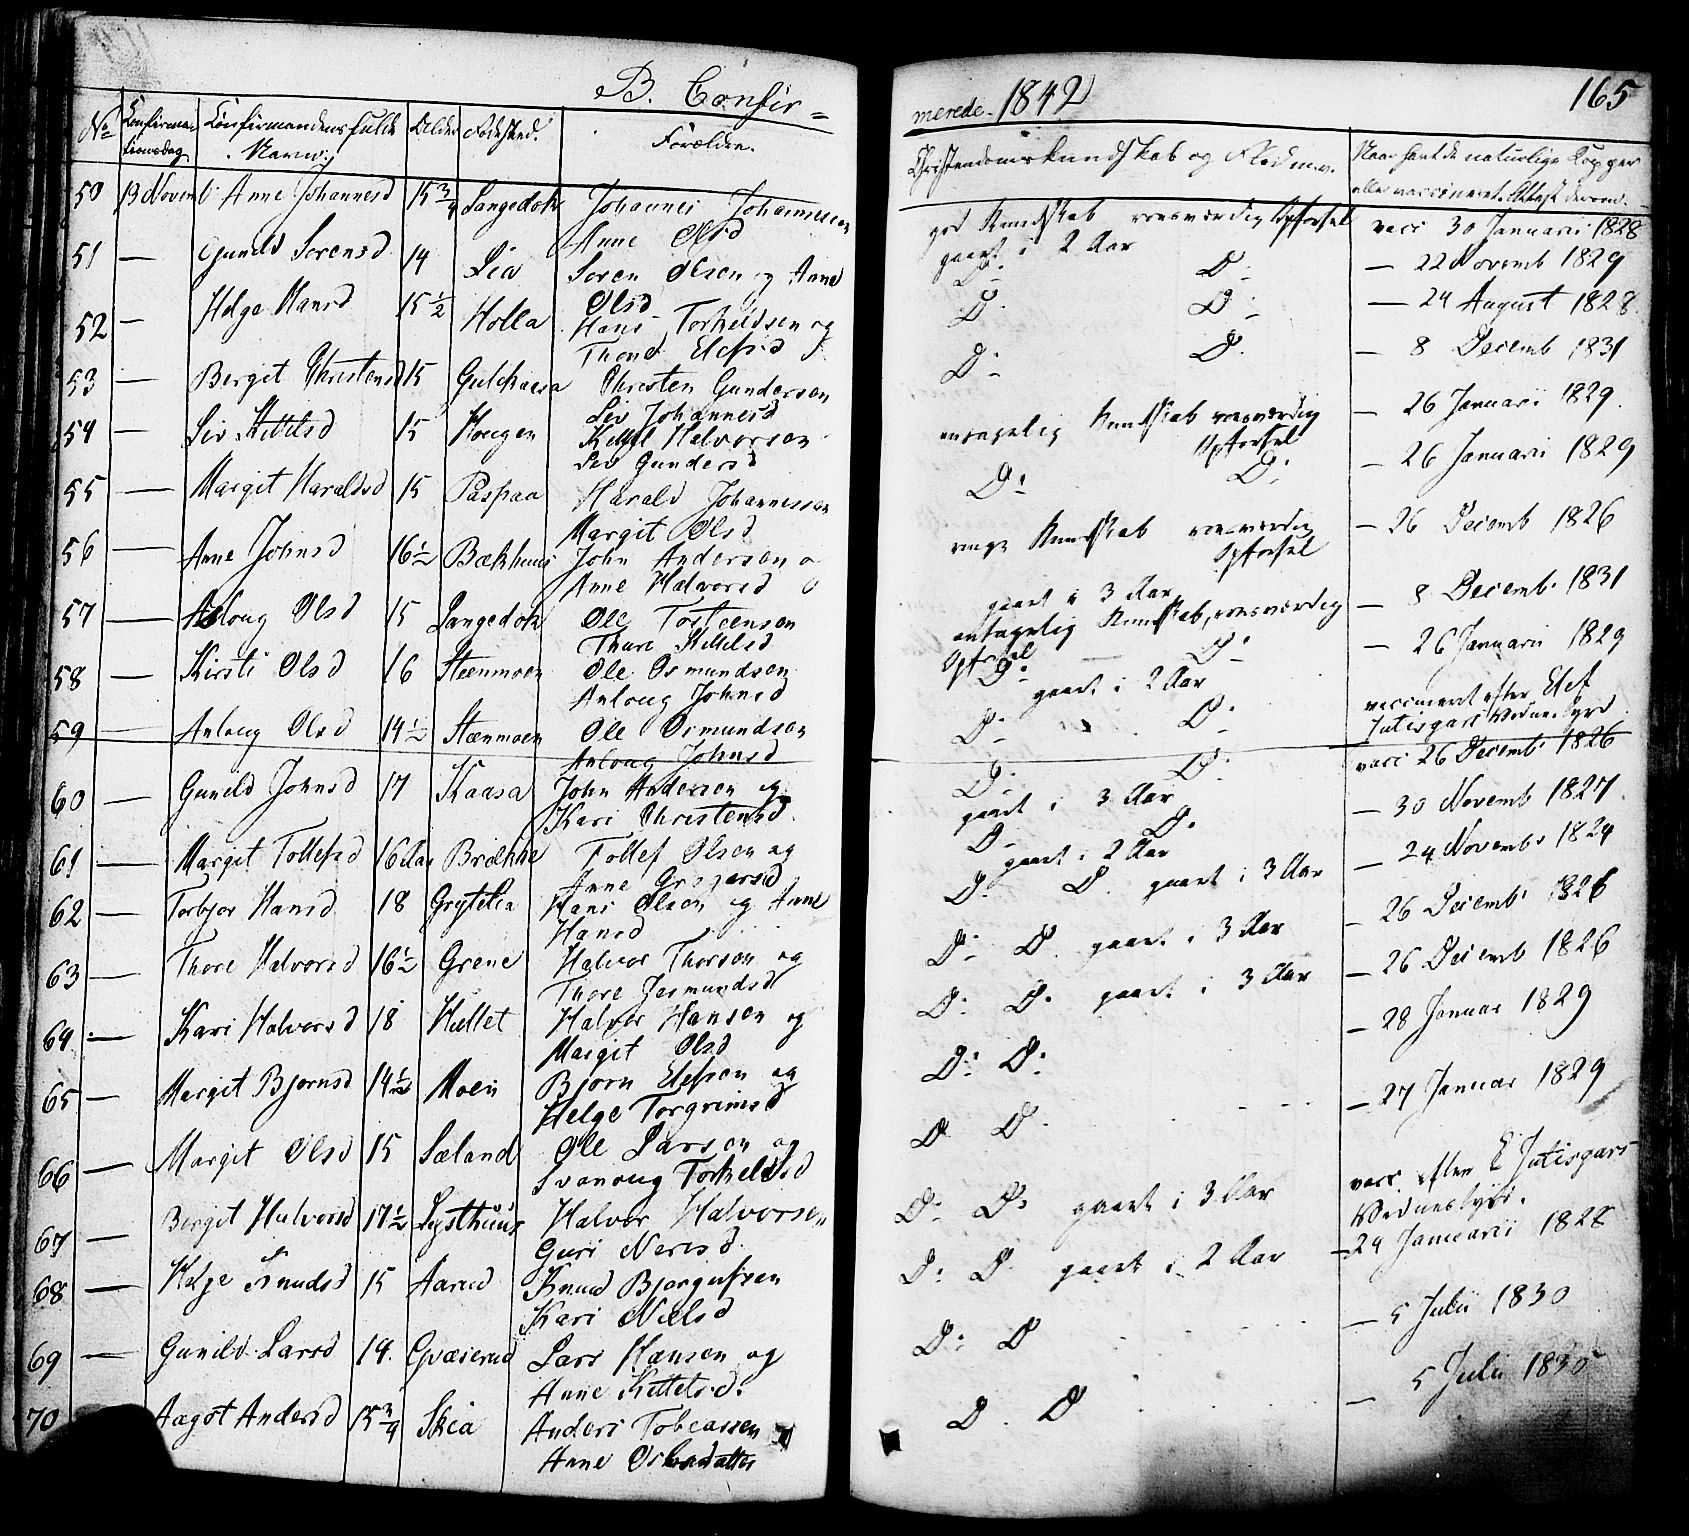 B. Confir=
merede. 1842
165
No
Confirma-
tionsdag
Confirmandens fulde
Navn.
Alder
Fødested.
Forældre.
Christendomskundskab og Flid m.v.
Naar havt de naturlige Kopper
eller vaccineret. Attest derom.
50 13 Novemb Anne Johannesd 15 3/4 Langedok Johannes Johannessen
Anne Olsd
god Kundskab roesværdig Opførsel
gaaet i 2 Aar
vacc 30 Januarii 1828
51 — Gunild Sorensd 14 Lia Soren Olsen og Anne
Olsd
D: D:
— 22 Novemb 1829
52 — Helge Hansd 15 1/2 Holla Hans Torkeldsen og
Thone Elefsd
D: D:
— 24 August 1828
53 — Bergit Christensd 15 Gulchaasa Christen Gundersen
Liv Johannesd
D: D:
— 8 Decemb 1831
54 — Liv Kittilsd 15 Hougen Kittil Halvorsen
Liv Gundersd
antagelig Kundskab roesværdig
Opførsel
— 26 Januarii 1829
55 — Margit Haraldsd 15 Paspaa Harald Johannessen
Margit Olsd
D: D:
— 26 Januarii 1829
56 — Anne Johnsd 16 1/2 Bækhuus John Andersen o
Anne Halvorsd
ringe Kundskab roesværdig
Opførsel
gaaet i 3 Aar
— 26 Decemb 1826
57 — Aaloug Olsd 15 Langedok Ole Tosteensen
Thure Kittilsd
antagelig Kundskab, roesværdig
Opførsel
— 8 Decemb 1831
58 — Kirsti Olsd 16 Steenmoen Ole Osmundsen
Anloug Johnsd
D: D:
gaaet i 2 Aar
— 26 Januarii 1829
59 — Anloug Olsd 14 1/2 Stænmoen Ole Osmundson
Anloug Johnsd
D: D:
vaccineret efter Elef
Jutisgars Vidnesbyrd
60 — Gunild Johnsd 17 Kaasa John Andersen og
Kari Christensd
D: D:
gaaet i 3 Aar
vacc 26 Decemb 1826
61 — Margit Tollefsd 16 Aar Brække Tollef Olsen og
Anne Gregarsd
D: D:
gaaet i 2 Aar
— 30 Novemb 1827
62 — Torbjor Hansd 18 Grytelia Hans Olsen og Anne
Hansd
D: D. gaaet i 3 Aar
— 24 Novemb 1824
63 — Thore Halvorsd 16 1/2 Grene Halvor Thorson og
Thore Jesmundsd
D: D. gaaet i 3 Aar
— 26 Decemb 1826
64 — Kari Halvorsd 18 Hullet Halvor Hansen og
Margit Olsd
D: D: gaaet i 3 Aar
— 26 Decemb 1826
65 — Margit Bjornsd 14 1/2 Moen Bjorn Elefsen og
Helge Torgrimsd
D: D:
— 28 Januar 1829
66 — Margit Olsd 15 Sæland Ole Larson og
Svanoug Torkeldsd
D D.
— 27 Januar 1829
67 — Bergit Halvorsd 17 1/2 Lysthuus Halvor Halvorsen
Guri Nerisd
D: D: gaaet i 3 Aar
vacc. efter E Jutisgars
Vidnesbyrd.
68 — Helge Knudsd 15 Aarud Knud Bjorgulfsen
Kari Nielsd
D: D. gaaet i 2 Aar
— 24 Januarii 1828
69 — Gunild Larsd 14. Gvæserud Lars Hansen og
Anne Kittelsd.
D: D
— 5 Julii 1830
70 Aagot Andersd 15 3/4 Skea Anders Tobeassen
Anne Osleadatter
D. D
— 5 Julii 1830